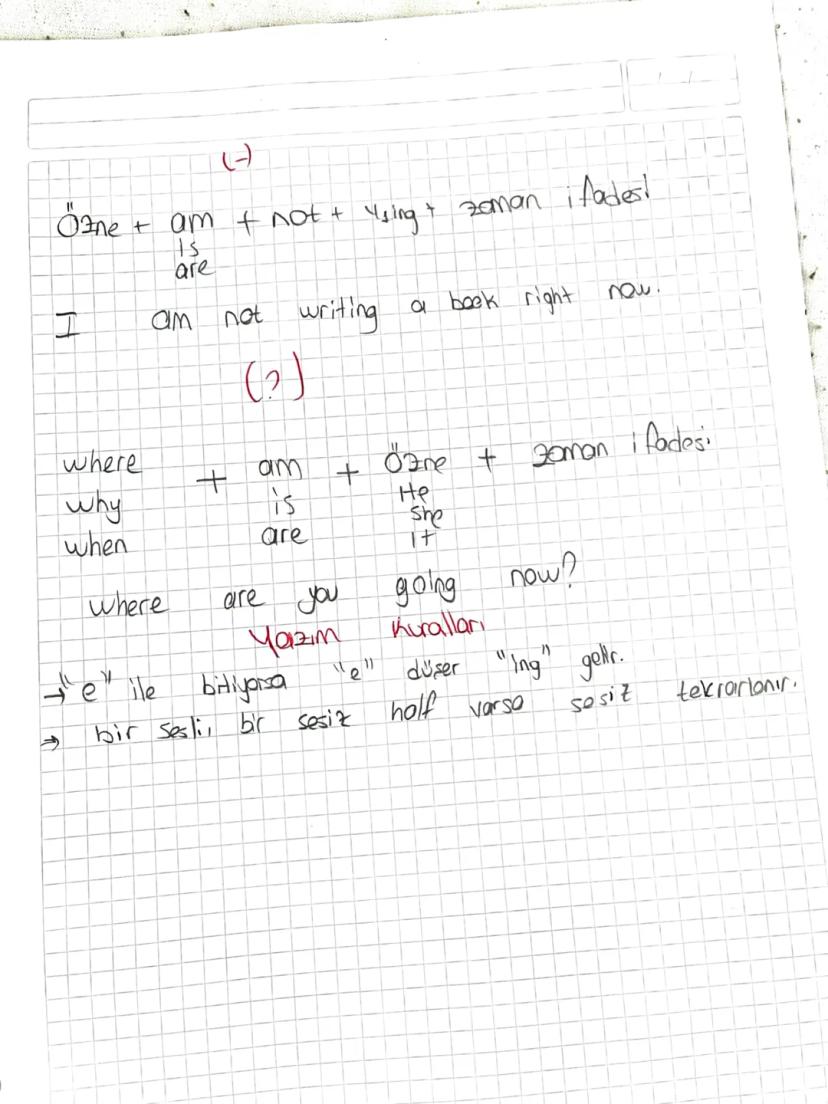 (-)
Özne + am + not + V1ing + zaman ifadesi
is
are
I am not writing a book right now.
(?)
where + am + Özne + zaman ifadesi
why is He
when are she
it
where are you going now?
Yazım Kuralları
→ "e" ile bitiyorsa "e" düşer "ing" gelir.
⇒ bir sesli, bir sesiz half varsa sesiz tekrarlanır.